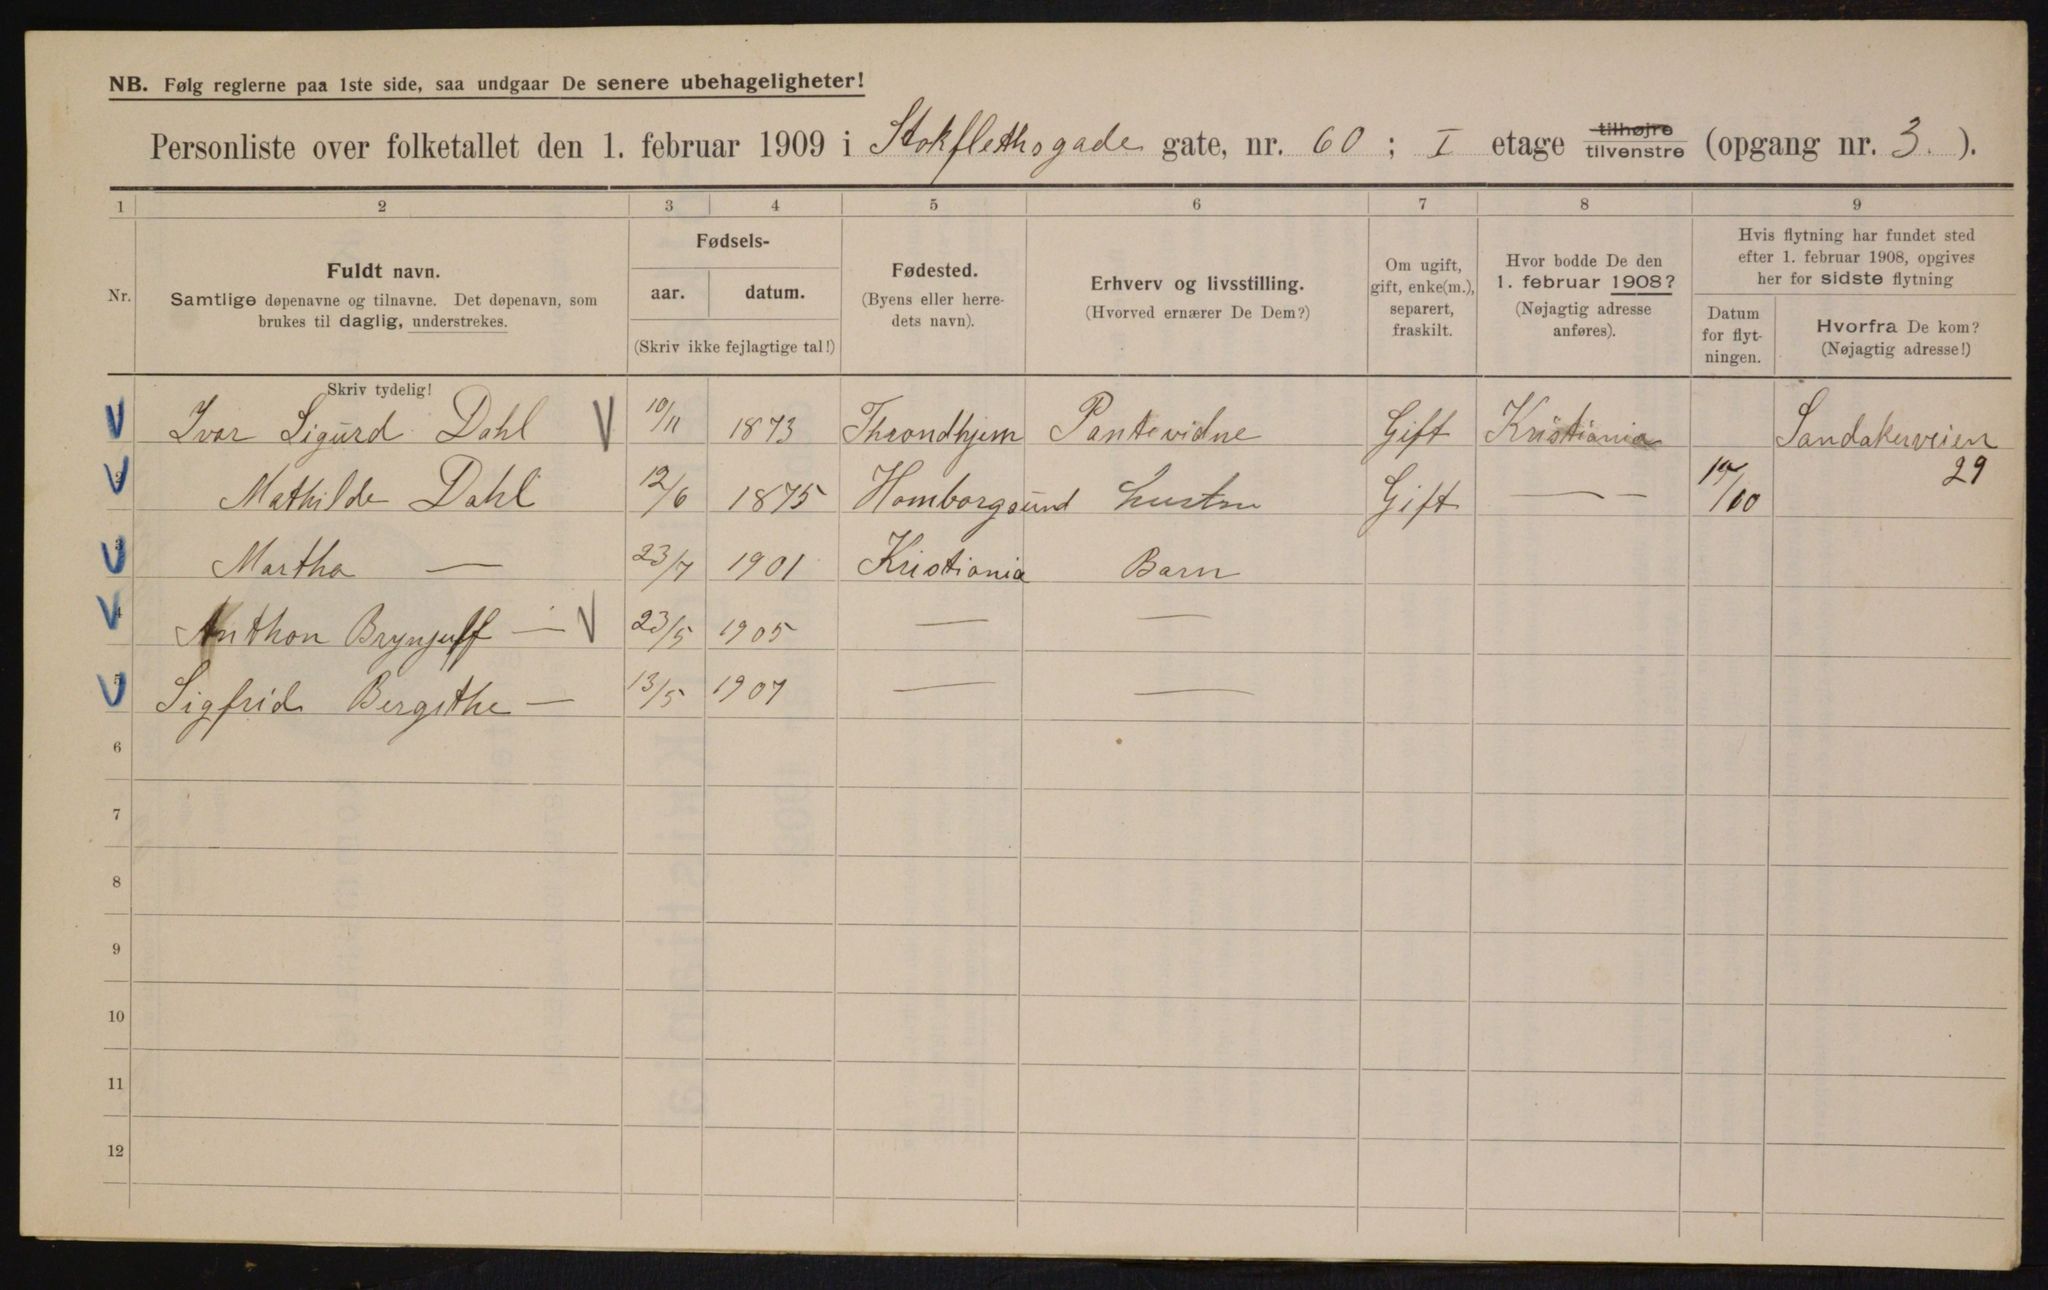 NB. Følg reglerne paa 1ste side, saa undgaar De senere ubehageligheter!
Personliste over folketallet den 1. februar 1909 i Stokflethsgade gate, nr. 60 ; I etage tilhøjre tilvenstre (opgang nr. 3. ).
1 2 3 4 5 6 7 8 9
Nr.
Fuldt navn.
Samtlige døpenavne og tilnavne. Det døpenavn, som
brukes til daglig, understrekes.
Skriv tydelig!
Fødsels-
aar. datum.
(Skriv ikke fejlagtige tal!)
Fødested.
(Byens eller herre-
dets navn).
Erhverv og livsstilling.
(Hvorved ernærer De Dem?)
Om ugift,
gift, enke(m.),
separert,
fraskilt.
Hvor bodde De den
1. februar 1908?
(Nøjagtig adresse
anføres).
Hvis flytning har fundet sted
efter 1. februar 1908, opgives
her for sidste flytning
Datum
for flyt-
ningen.
Hvorfra De kom?
(Nøjagtig adresse!)
Ivar Sigurd Dahl 10/11 1873 Throndhjem Pantevidne Gift Kristiania Sandakerveien
2 Mathilde Dahl 12/6 1875 Homborgsund Hustru Gift — /10 29
3 Martha — 23/7 1901 Kristiania Barn
4 Anthon Brynjulf — 23/5 1905 — —
5 Sigfrid Bergithe — 13/5 1907 — —
6
7
8
9
10
11
12